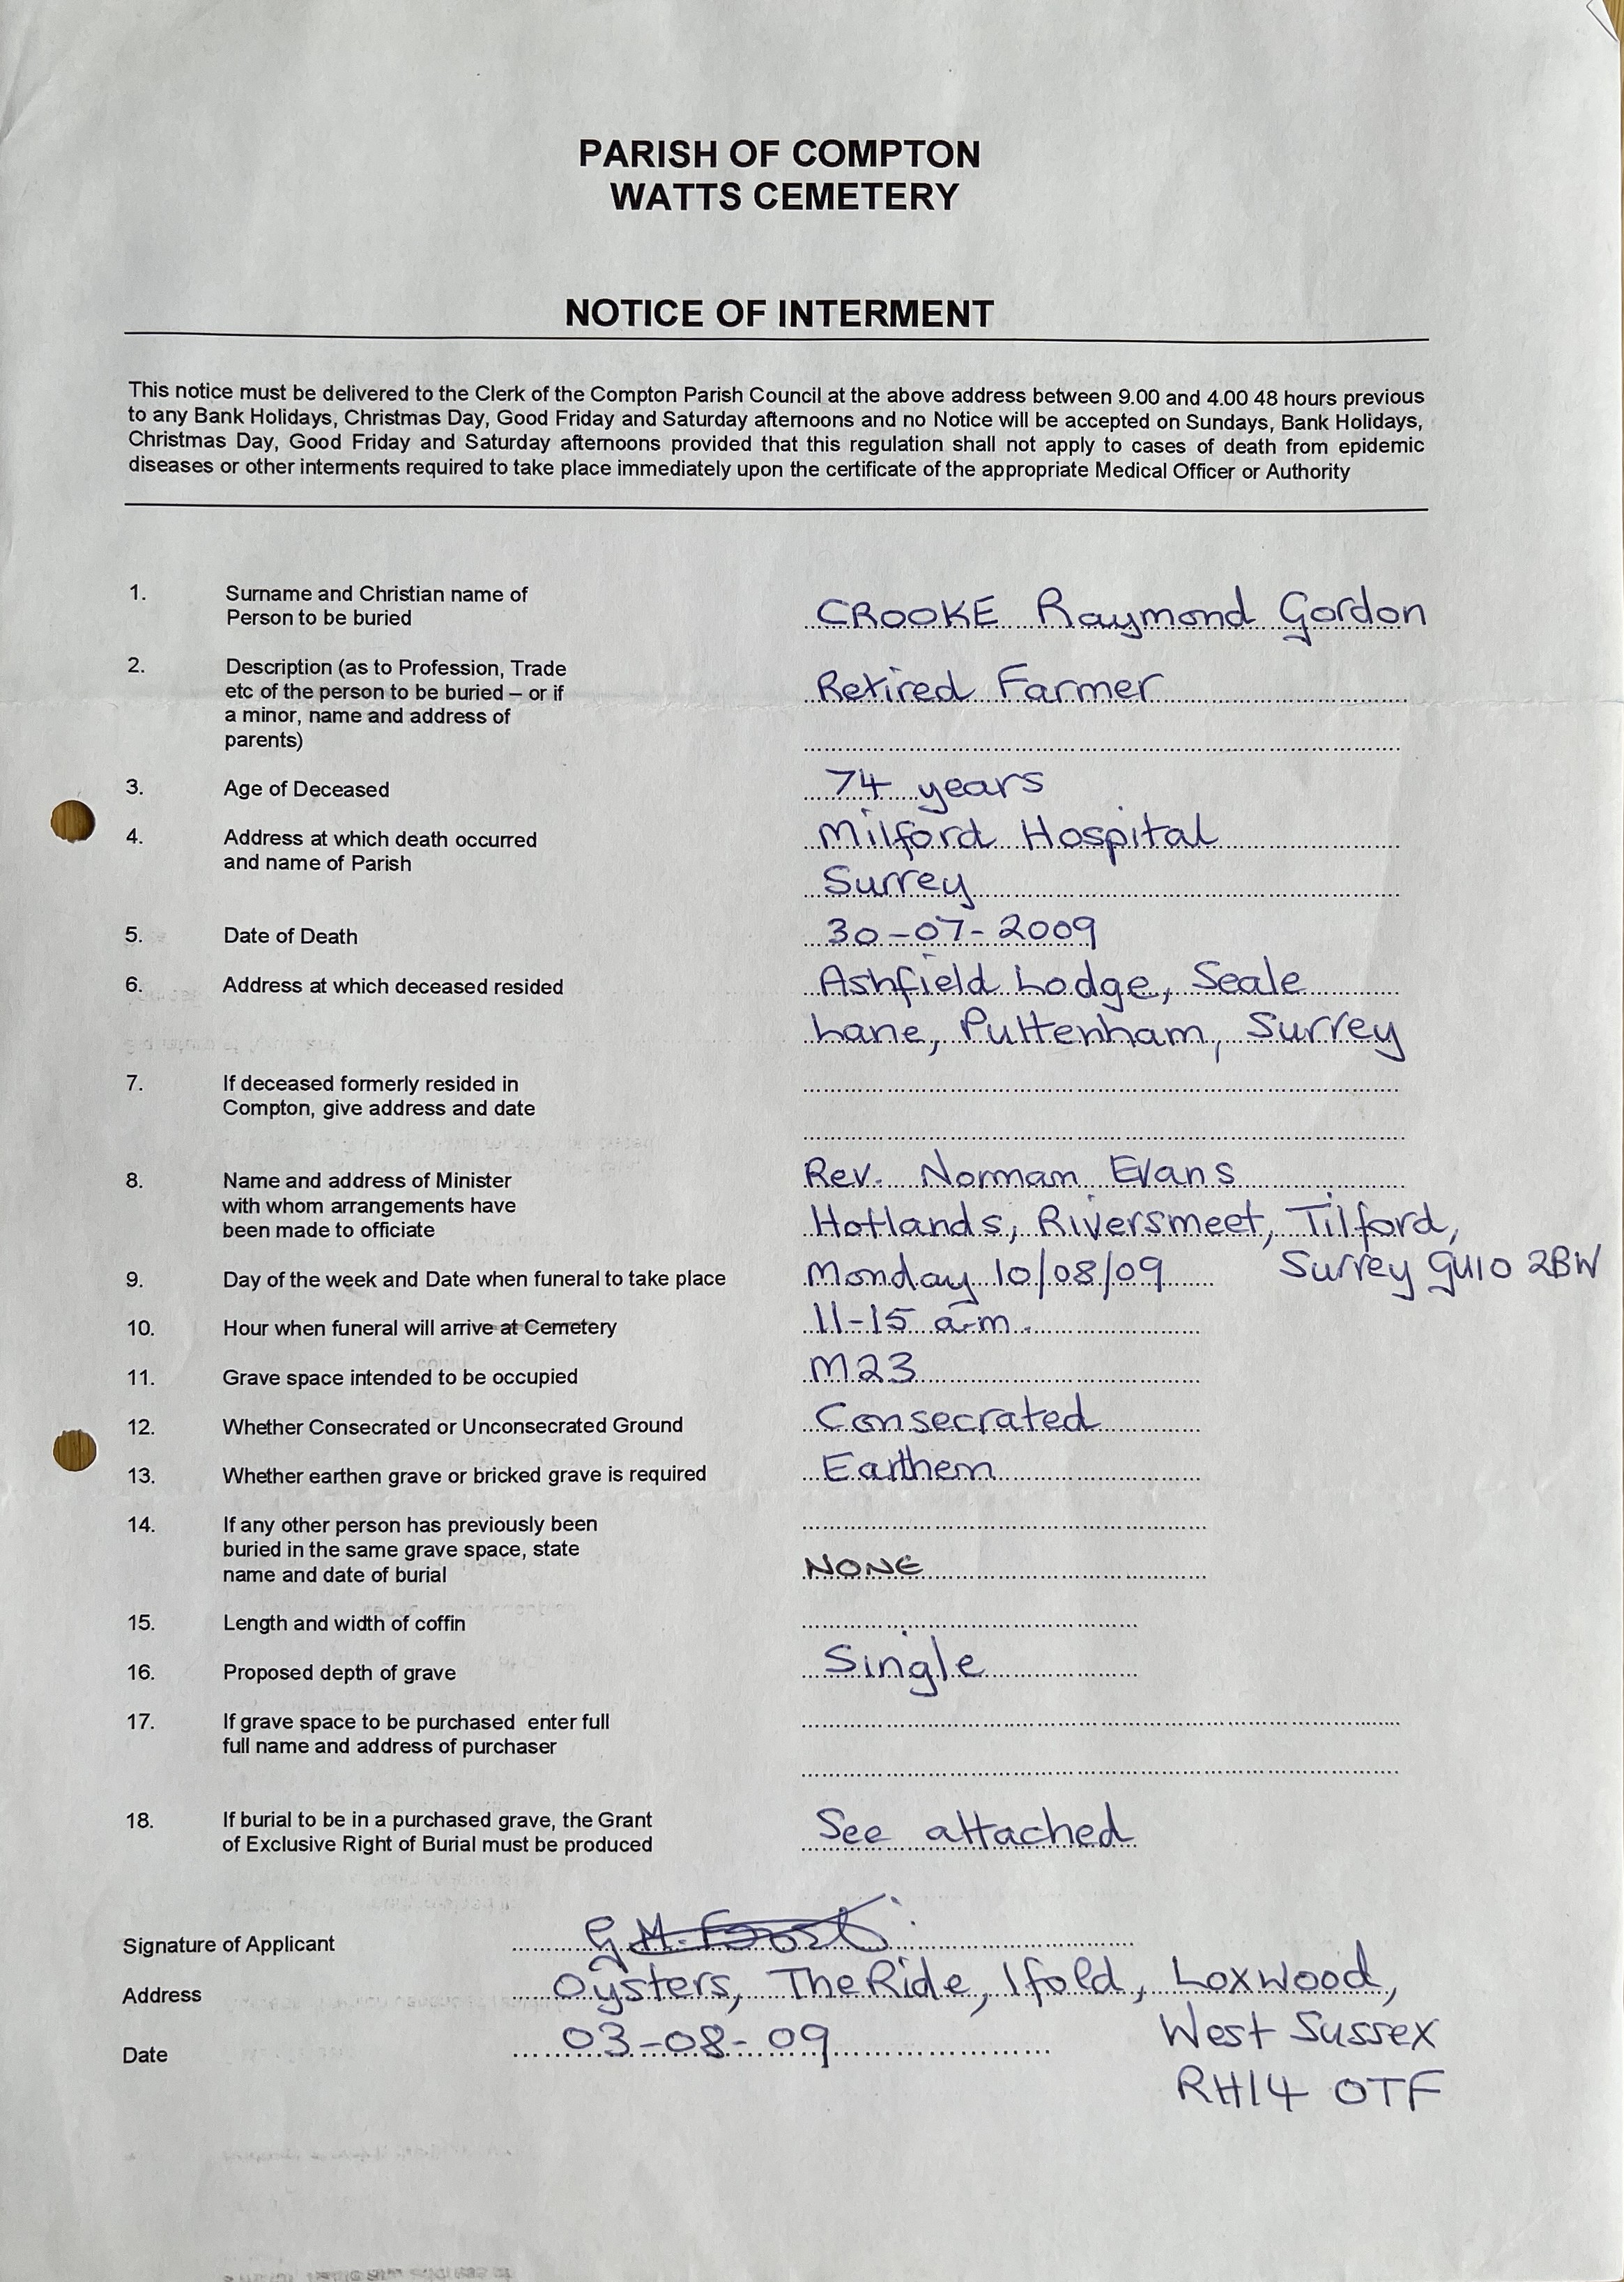 PARISH OF COMPTON
WATTS CEMETERY
NOTICE OF INTERMENT
This notice must be delivered to the Clerk of the Compton Parish Council at the above address between 9.00 and 4.00 48 hours previous
to any Bank Holidays, Christmas Day, Good Friday and Saturday afternoons and no Notice will be accepted on Sundays, Bank Holidays,
Christmas Day, Good Friday and Saturday afternoons provided that this regulation shall not apply to cases of death from epidemic
diseases or other interments required to take place immediately upon the certificate of the appropriate Medical Officer or Authority
1. Surname and Christian name of
Person to be buried
CROOKE Raymond Gordon
2. Description (as to Profession, Trade
etc of the person to be buried – or if
a minor, name and address of
parents)
Retired Farmer
3. Age of Deceased
74 years
4. Address at which death occurred
and name of Parish
Milford Hospital
Surrey
5. Date of Death
30-07-2009
6. Address at which deceased resided
Ashfield Lodge, Seale
Lane, Puttenham, Surrey
7. If deceased formerly resided in
Compton, give address and date
8. Name and address of Minister
with whom arrangements have
been made to officiate
Rev. Norman Evans
Hotlands, Riversmeet, Tilford,
Surrey GU10 2BW
9. Day of the week and Date when funeral to take place
Monday 10/08/09
10. Hour when funeral will arrive at Cemetery
11-15 a.m.
11. Grave space intended to be occupied
M23
12. Whether Consecrated or Unconsecrated Ground
Consecrated
13. Whether earthen grave or bricked grave is required
Earthen
14. If any other person has previously been
buried in the same grave space, state
name and date of burial
NONE
15. Length and width of coffin
16. Proposed depth of grave
Single
17. If grave space to be purchased enter full
full name and address of purchaser
18. If burial to be in a purchased grave, the Grant
of Exclusive Right of Burial must be produced
See attached
Signature of Applicant
G.M.
Address
Oysters, The Ride, Ifold, Loxwood,
West Sussex
RH14 0TF
Date
03-08-09